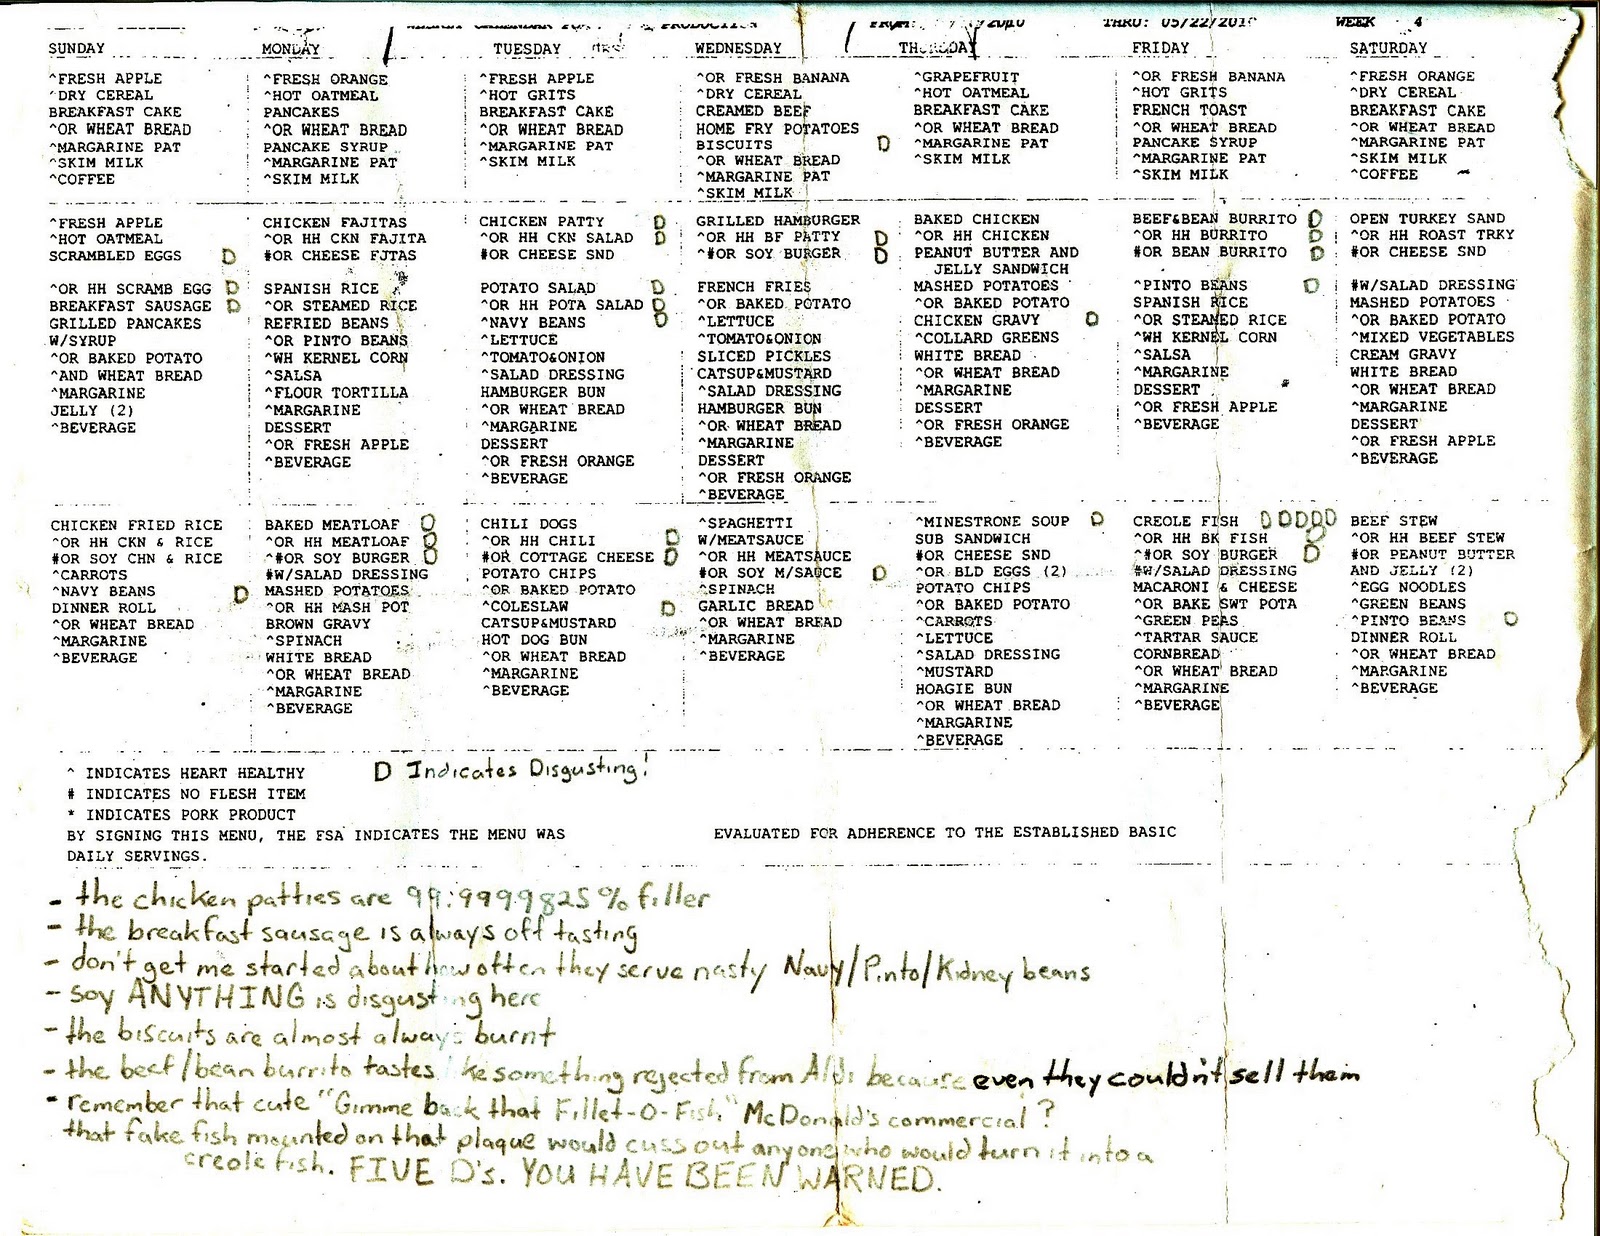 CALENDAR PRODUCTION THRU: 05/22/2010 WEEK 4
SUNDAY MONDAY TUESDAY WEDNESDAY THURSDAY FRIDAY SATURDAY
^FRESH APPLE
^DRY CEREAL
BREAKFAST CAKE
^OR WHEAT BREAD
^MARGARINE PAT
^SKIM MILK
^COFFEE
^FRESH ORANGE
^HOT OATMEAL
PANCAKES
^OR WHEAT BREAD
PANCAKE SYRUP
^MARGARINE PAT
^SKIM MILK
^FRESH APPLE
^HOT GRITS
BREAKFAST CAKE
^OR WHEAT BREAD
^MARGARINE PAT
^SKIM MILK
^OR FRESH BANANA
^DRY CEREAL
CREAMED BEEF
HOME FRY POTATOES
BISCUITS D
^OR WHEAT BREAD
^MARGARINE PAT
^SKIM MILK
^GRAPEFRUIT
^HOT OATMEAL
BREAKFAST CAKE
^OR WHEAT BREAD
^MARGARINE PAT
^SKIM MILK
^OR FRESH BANANA
^HOT GRITS
FRENCH TOAST
^OR WHEAT BREAD
PANCAKE SYRUP
^MARGARINE PAT
^SKIM MILK
^FRESH ORANGE
^DRY CEREAL
BREAKFAST CAKE
^OR WHEAT BREAD
^MARGARINE PAT
^SKIM MILK
^COFFEE
^FRESH APPLE
^HOT OATMEAL
SCRAMBLED EGGS D
^OR HH SCRAMB EGG D
BREAKFAST SAUSAGE D
GRILLED PANCAKES
W/SYRUP
^OR BAKED POTATO
^AND WHEAT BREAD
^MARGARINE
JELLY (2)
^BEVERAGE
CHICKEN FAJITAS
^OR HH CKN FAJITA
#OR CHEESE FJTAS
SPANISH RICE
^OR STEAMED RICE
REFRIED BEANS
^OR PINTO BEANS
^WH KERNEL CORN
^SALSA
^FLOUR TORTILLA
^MARGARINE
DESSERT
^OR FRESH APPLE
^BEVERAGE
CHICKEN PATTY D
^OR HH CKN SALAD D
#OR CHEESE SND
POTATO SALAD D
^OR HH POTA SALAD D
^NAVY BEANS D
^LETTUCE
^TOMATO&ONION
^SALAD DRESSING
HAMBURGER BUN
^OR WHEAT BREAD
^MARGARINE
DESSERT
^OR FRESH ORANGE
^BEVERAGE
GRILLED HAMBURGER
^OR HH BF PATTY D
^#OR SOY BURGER D
FRENCH FRIES
^OR BAKED POTATO
^LETTUCE
^TOMATO&ONION
SLICED PICKLES
CATSUP&MUSTARD
^SALAD DRESSING
HAMBURGER BUN
^OR WHEAT BREAD
^MARGARINE
DESSERT
^OR FRESH ORANGE
^BEVERAGE
BAKED CHICKEN
^OR HH CHICKEN
PEANUT BUTTER AND
JELLY SANDWICH
MASHED POTATOES
^OR BAKED POTATO
CHICKEN GRAVY D
^COLLARD GREENS
WHITE BREAD
^OR WHEAT BREAD
^MARGARINE
DESSERT
^OR FRESH ORANGE
^BEVERAGE
BEEF&BEAN BURRITO D
^OR HH BURRITO D
#OR BEAN BURRITO D
^PINTO BEANS D
SPANISH RICE
^OR STEAMED RICE
^WH KERNEL CORN
^SALSA
^MARGARINE
DESSERT
^OR FRESH APPLE
^BEVERAGE
OPEN TURKEY SAND
^OR HH ROAST TRKY
#OR CHEESE SND
#W/SALAD DRESSING
MASHED POTATOES
^OR BAKED POTATO
^MIXED VEGETABLES
CREAM GRAVY
WHITE BREAD
^OR WHEAT BREAD
^MARGARINE
DESSERT
^OR FRESH APPLE
^BEVERAGE
CHICKEN FRIED RICE
^OR HH CKN & RICE
#OR SOY CHN & RICE
^CARROTS
^NAVY BEANS D
DINNER ROLL
^OR WHEAT BREAD
^MARGARINE
^BEVERAGE
BAKED MEATLOAF D
^OR HH MEATLOAF D
^#OR SOY BURGER D
#W/SALAD DRESSING
MASHED POTATOES
^OR HH MASH POT
BROWN GRAVY
^SPINACH
WHITE BREAD
^OR WHEAT BREAD
^MARGARINE
^BEVERAGE
CHILI DOGS
^OR HH CHILI D
#OR COTTAGE CHEESE D
POTATO CHIPS
^OR BAKED POTATO
^COLESLAW D
CATSUP&MUSTARD
HOT DOG BUN
^OR WHEAT BREAD
^MARGARINE
^BEVERAGE
^SPAGHETTI
W/MEATSAUCE
^OR HH MEATSAUCE
#OR SOY M/SAUCE D
^SPINACH
GARLIC BREAD
^OR WHEAT BREAD
^MARGARINE
^BEVERAGE
^MINESTRONE SOUP D
SUB SANDWICH
#OR CHEESE SND
^OR BLD EGGS (2)
POTATO CHIPS
^OR BAKED POTATO
^CARROTS
^LETTUCE
^SALAD DRESSING
^MUSTARD
HOAGIE BUN
^OR WHEAT BREAD
^MARGARINE
^BEVERAGE
CREOLE FISH DDDDD
^OR HH BK FISH D
^#OR SOY BURGER D
#W/SALAD DRESSING
MACARONI & CHEESE
^OR BAKE SWT POTA
^GREEN PEAS
^TARTAR SAUCE
CORNBREAD
^OR WHEAT BREAD
^MARGARINE
^BEVERAGE
BEEF STEW
^OR HH BEEF STEW
#OR PEANUT BUTTER
AND JELLY (2)
^EGG NOODLES
^GREEN BEANS
^PINTO BEANS D
DINNER ROLL
^OR WHEAT BREAD
^MARGARINE
^BEVERAGE
^ INDICATES HEART HEALTHY D Indicates Disgusting!
# INDICATES NO FLESH ITEM
* INDICATES PORK PRODUCT
BY SIGNING THIS MENU, THE FSA INDICATES THE MENU WAS EVALUATED FOR ADHERENCE TO THE ESTABLISHED BASIC
DAILY SERVINGS.
- the chicken patties are 99.9999825% filler
- the breakfast sausage is always off tasting
- don't get me started about how often they serve nasty Navy/Pinto/Kidney beans
- soy ANYTHING is disgusting here
- the biscuits are almost always burnt
- the beef/bean burrito tastes like something rejected from Aldi because even they couldn't sell them
- remember that cute "Gimme back that Fillet-O-Fish" McDonald's commercial?
that fake fish mounted on that plaque would cuss out anyone who would turn it into a
creole fish. FIVE D's. YOU HAVE BEEN WARNED.